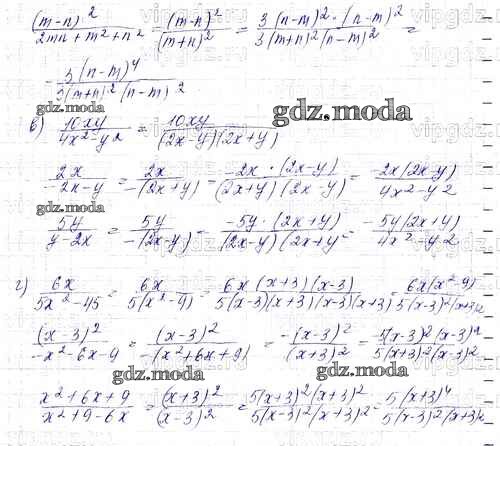 (m-n)²/(2mn+m²+n²) = (m-n)²/(m+n)² = 3(n-m)²·(n-m)²/(3(m+n)²(n-m)²) =
= 3(n-m)⁴/(3(m+n)²(n-m)²)
gdz.moda
в) 10xy/(4x²-y²) = 10xy/((2x-y)(2x+y))
gdz.moda
2x/(-2x-y) = 2x/(-(2x+y)) = -2x·(2x-y)/((2x+y)(2x-y)) = -2x(2x-y)/(4x²-y²)
5y/(y-2x) = 5y/(-(2x-y)) = -5y·(2x+y)/((2x-y)(2x+y) = -5y(2x+y)/(4x²-y²)
gdz.moda
г) 6x/(5x²-45) = 6x/(5(x²-9)) = 6x(x+3)(x-3)/(5(x-3)(x+3)(x-3)(x+3)) = 6x(x²-9)/(5(x-3)²(x+3)²)
(x-3)²/(-x²-6x-9) = (x-3)²/(-(x²+6x+9)) = -(x-3)²/(x+3)² = -5(x-3)²(x-3)²/(5(x+3)²(x-3)²)
gdz.moda
gdz.moda
(x²+6x+9)/(x²+9-6x) = (x+3)²/(x-3)² = 5(x+3)²(x+3)²/(5(x-3)²(x+3)²) = 5(x+3)⁴/(5(x-3)²(x+3)²)
gdz.moda